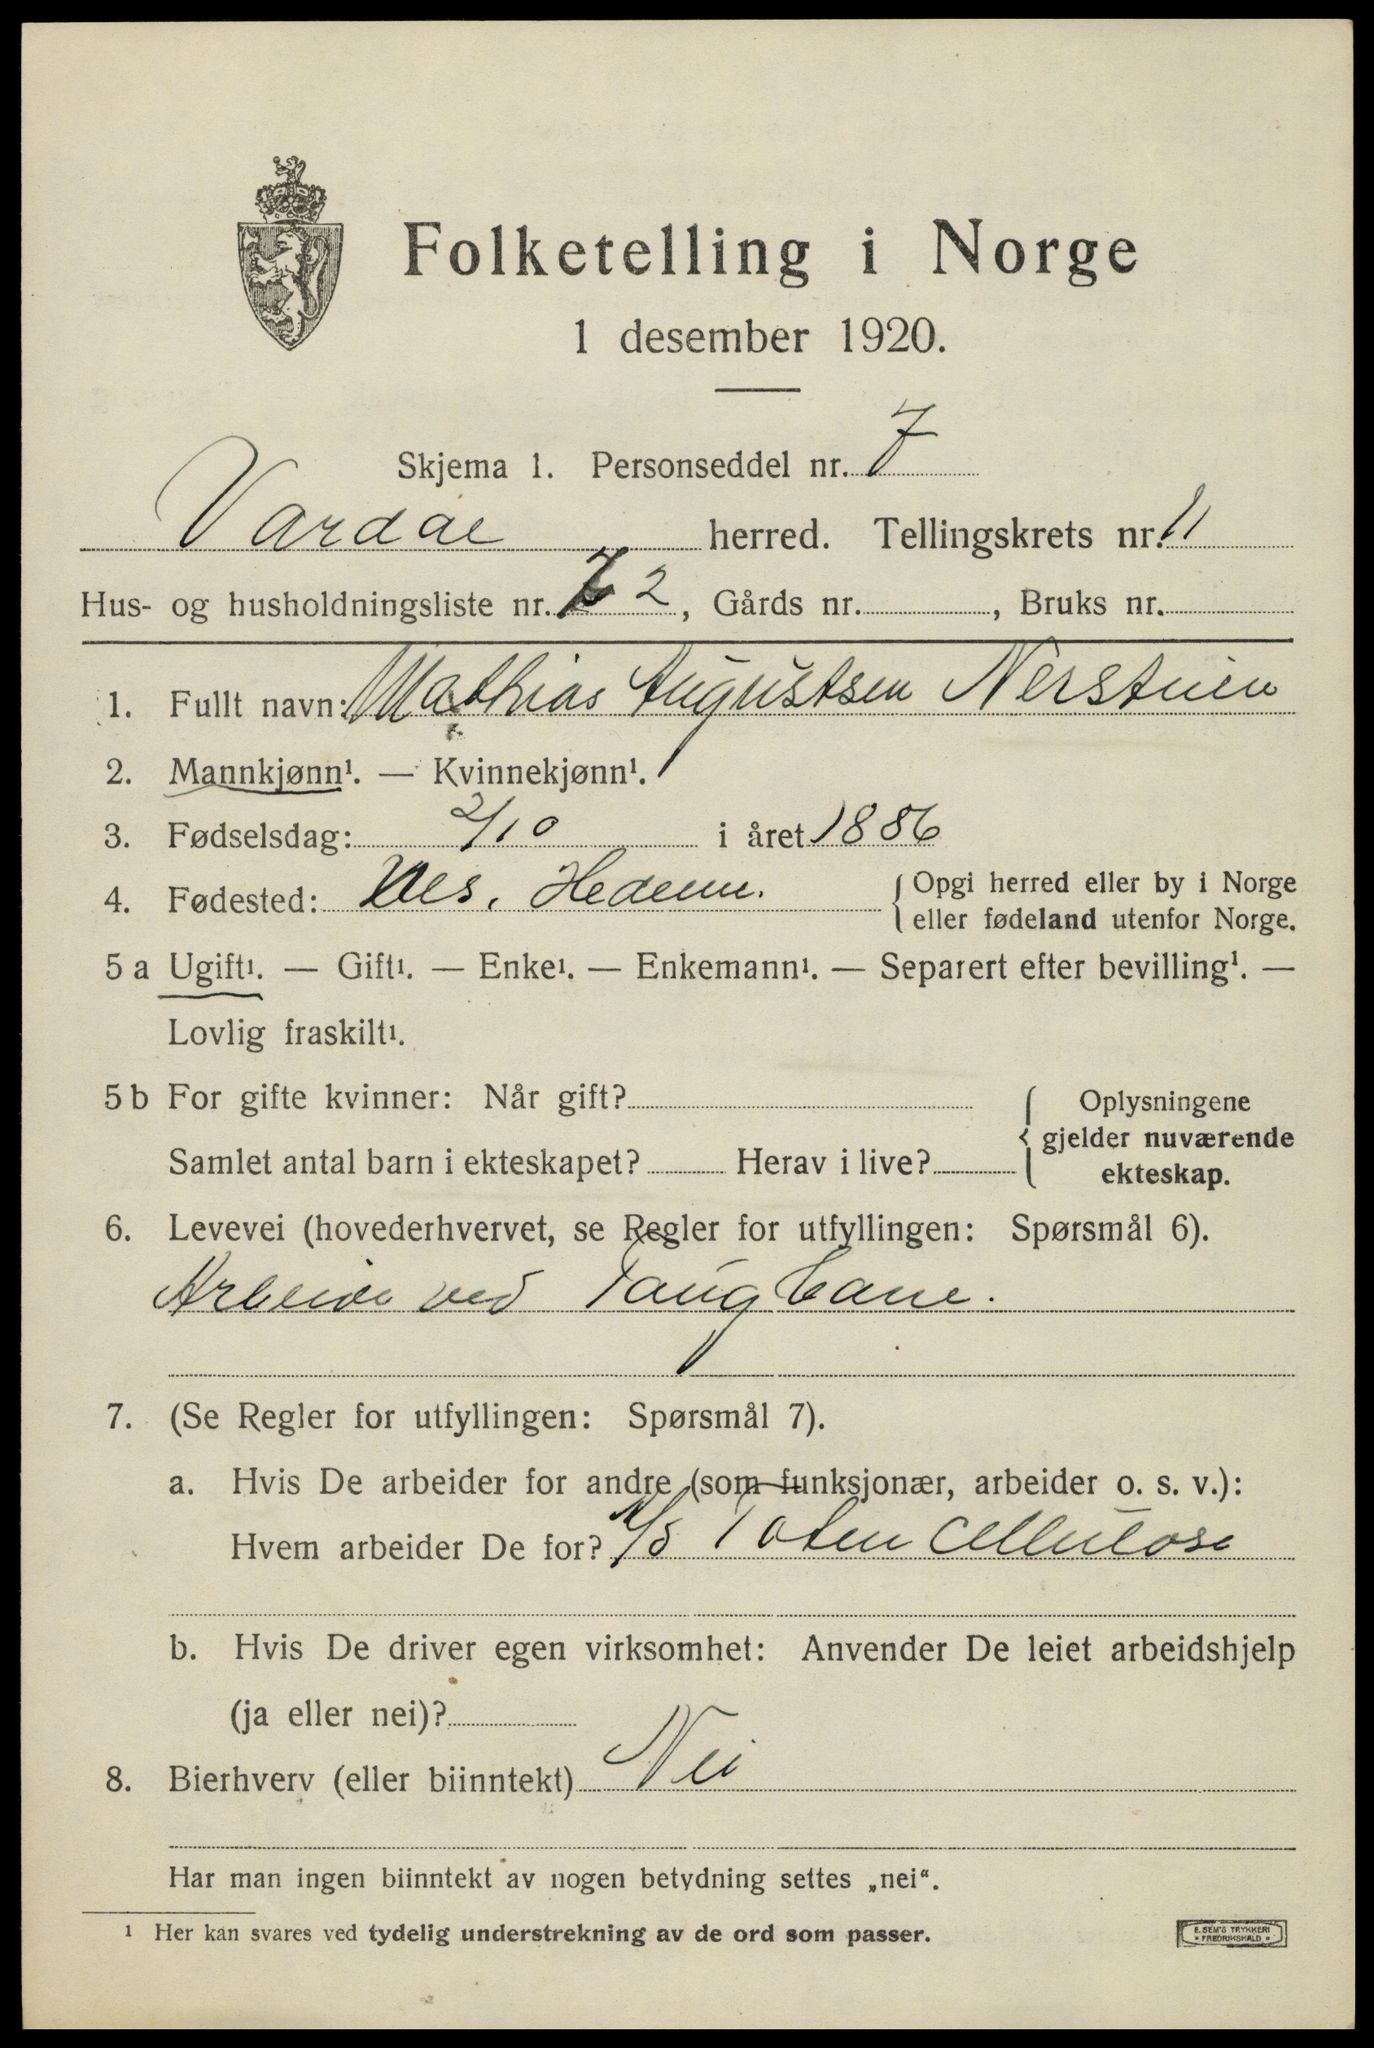 Folketelling i Norge
1 desember 1920.
Skjema 1. Personseddel nr. 7
Vardal herred. Tellingskrets nr. 11
Hus- og husholdningsliste nr. 2, Gårds nr. , Bruks nr.
1. Fullt navn: Mathias Augustsen Nerstuen
2. Mannkjønn¹. — Kvinnekjønn¹.
3. Fødselsdag: 2/10 i året 1886
4. Fødested: Nes, Hedem. { Opgi herred eller by i Norge
eller fødeland utenfor Norge.
5 a Ugift¹. — Gift¹. — Enke¹. — Enkemann¹. — Separert efter bevilling¹. —
Lovlig fraskilt¹.
5 b For gifte kvinner: Når gift? { Oplysningene
gjelder nuværende
Samlet antal barn i ekteskapet? Herav i live? ekteskap.
6. Levevei (hovederhvervet, se Regler for utfyllingen: Spørsmål 6).
Arbeider ved Taugbane.
7. (Se Regler for utfyllingen: Spørsmål 7).
a. Hvis De arbeider for andre (som funksjonær, arbeider o. s. v.):
Hvem arbeider De for? A/S Toten Cellulose
b. Hvis De driver egen virksomhet: Anvender De leiet arbeidshjelp
(ja eller nei)?
8. Bierhverv (eller biinntekt) Nei
Har man ingen biinntekt av nogen betydning settes „nei“.
¹ Her kan svares ved tydelig understrekning av de ord som passer.
E. SEM'S TRYKKERI
* FREDRIKSHALD *